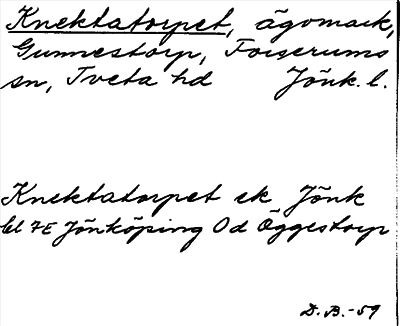 Knektatorpet, ägomark,
Gunnestorp, Forserums
sn, Tveta hd Jönk. l.
Knektatorpet ek Jönk
bl 7E Jönköping Od Öggestorp
D.B.-59